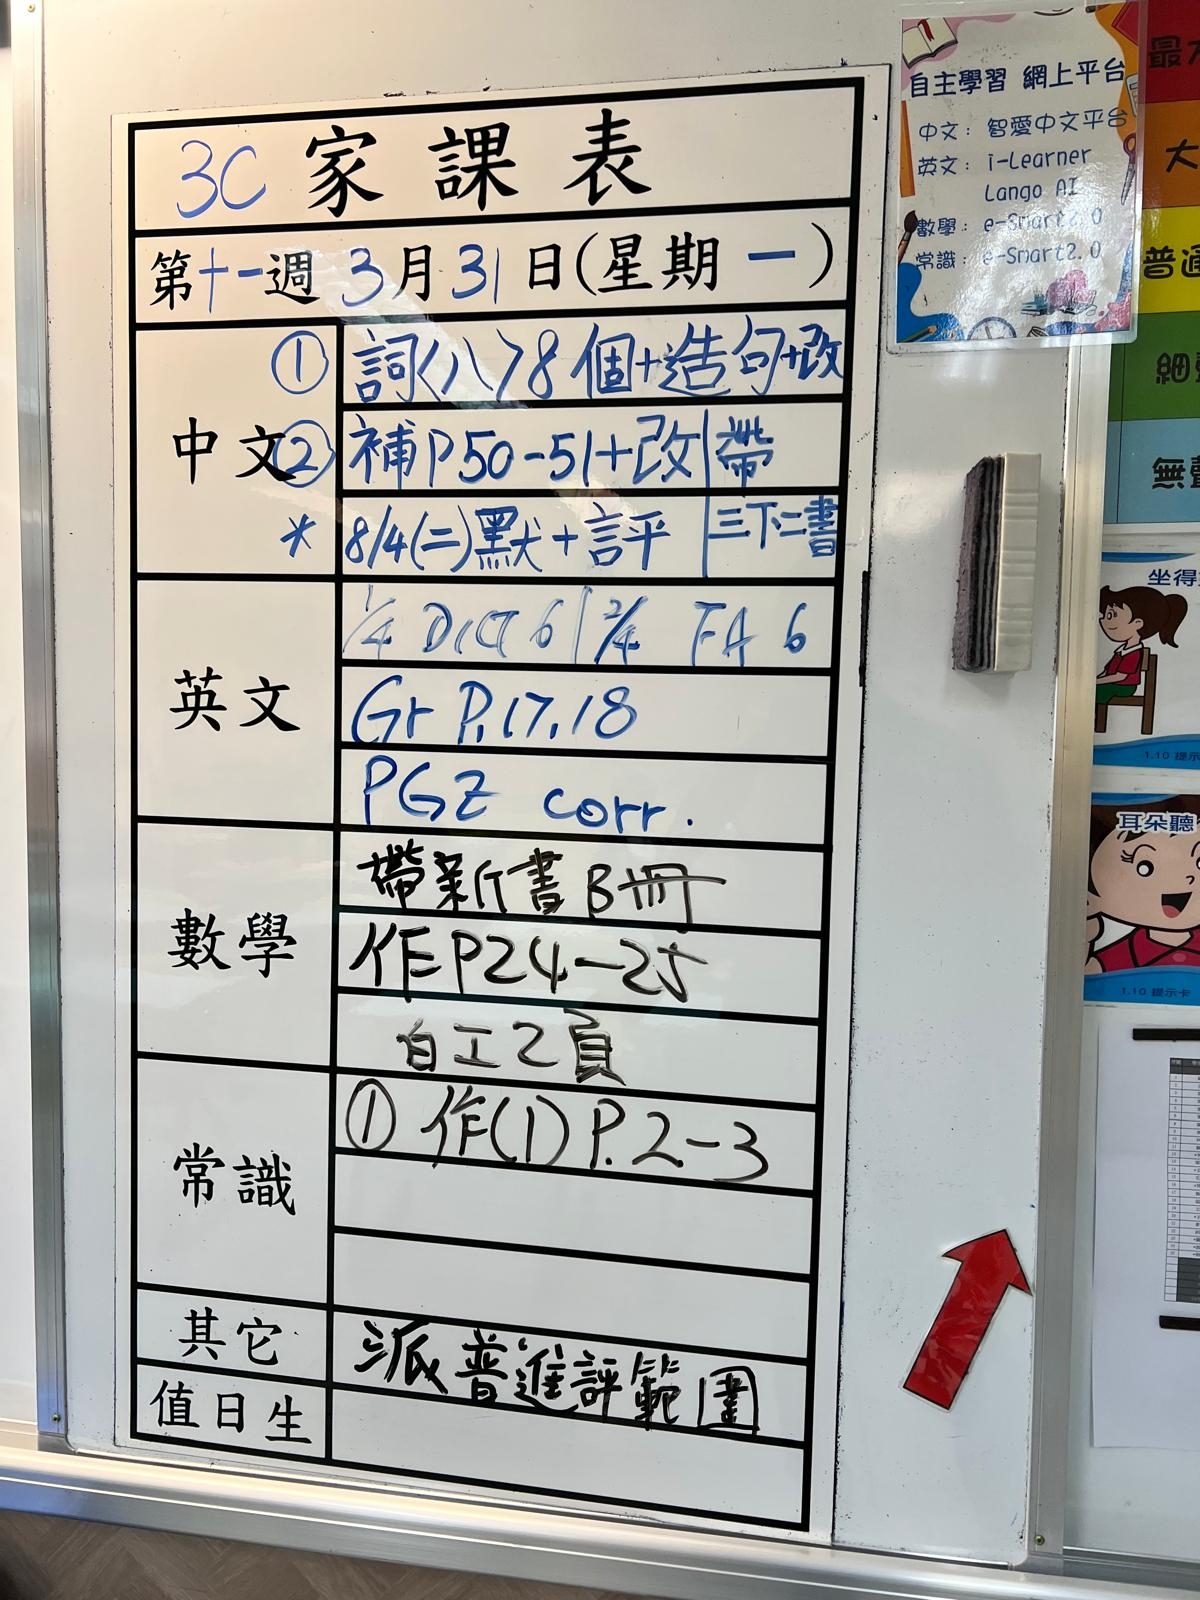 3C 家課表
第十一週 3月31日(星期一)
中文
① 詞〈八〉8個+造句+改
② 補P50-51+改 帶
* 8/4(二)默+評 三下二書
英文
1/4 Dict 6 2/4 FA 6
Gr P.17,18
PGZ corr.
數學
帶新書B冊
作P24-25
自工2頁
常識
① 作(1) P.2-3
其它
派普進評範圍
值日生
自主學習 網上平台
中文: 智愛中文平台
英文: i-Learner
Lango AI
數學: e-Smart2.0
常識: e-Smart2.0
最大
普通
無聲
坐得
1.10 提示
耳朵聽
1.10 提示卡